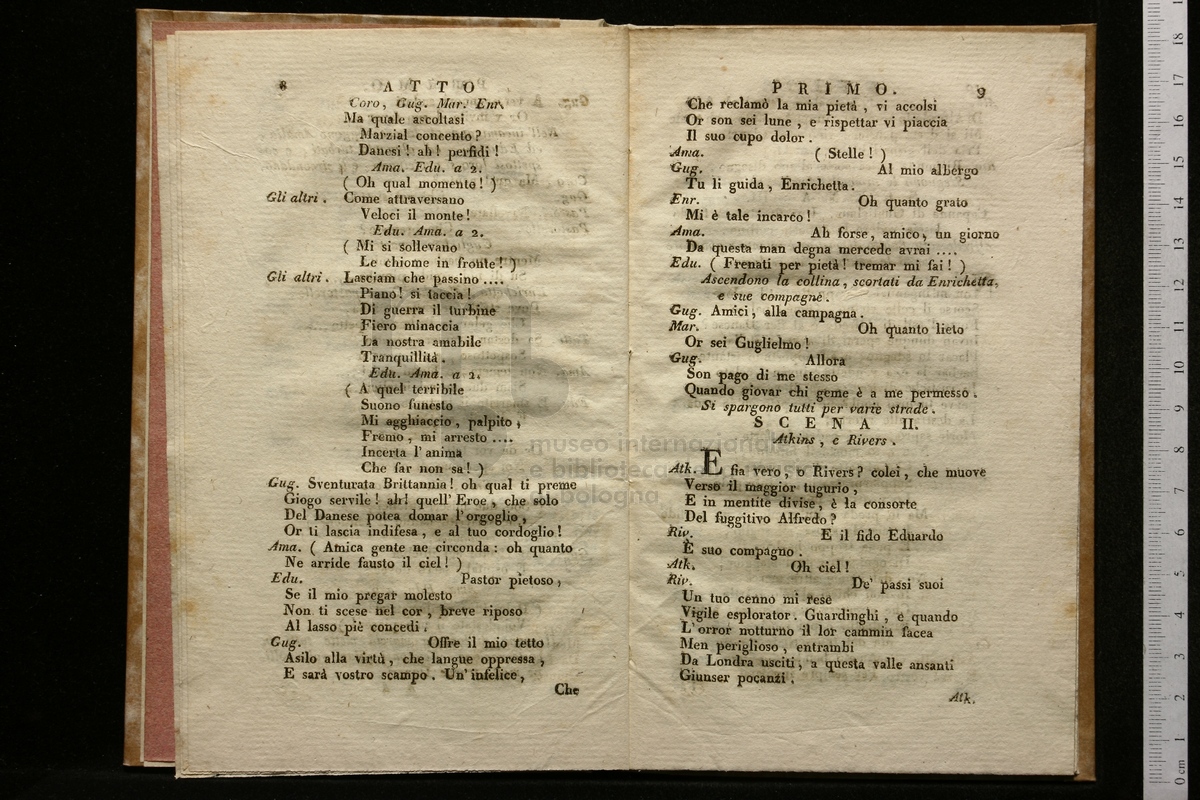 8 ATTO
Coro, Gug. Mar. Enr.
Ma quale ascoltasi
Marzial concento?
Danesi! ah! perfidi!
Ama. Edu. a 2.
( Oh qual momento! )
Gli altri. Come attraversano
Veloci il monte!
Edu. Ama. a 2.
( Mi si sollevano
Le chiome in fronte! )
Gli altri. Lasciam che passino ....
Piano! si taccia!
Di guerra il turbine
Fiero minaccia
La nostra amabile
Tranquillità.
Edu. Ama. a 2.
( A quel terribile
Suono funesto
Mi agghiaccio, palpito,
Fremo, mi arresto ....
Incerta l'anima
Che far non sa! )
Gug. Sventurata Brittannia! oh qual ti preme
Giogo servile! ah! quell'Eroe, che solo
Del Danese potea domar l'orgoglio,
Or ti lascia indifesa, e al tuo cordoglio!
Ama. ( Amica gente ne circonda: oh quanto
Ne arride fausto il ciel! )
Edu. Pastor pietoso,
Se il mio pregar molesto
Non ti scese nel cor, breve riposo
Al lasso piè concedi.
Gug. Offre il mio tetto
Asilo alla virtù, che langue oppressa,
E sarà vostro scampo. Un'infelice,
Che
PRIMO. 9
Che reclamò la mia pietà, vi accolsi
Or son sei lune, e rispettar vi piaccia
Il suo cupo dolor.
Ama. ( Stelle! )
Gug. Al mio albergo
Tu li guida, Enrichetta.
Enr. Oh quanto grato
Mi è tale incarco!
Ama. Ah forse, amico, un giorno
Da questa man degna mercede avrai ....
Edu. ( Frenati per pietà! tremar mi fai! )
Ascendono la collina, scortati da Enrichetta,
e sue compagne.
Gug. Amici, alla campagna.
Mar. Oh quanto lieto
Or sei Guglielmo!
Gug. Allora
Son pago di me stesso
Quando giovar chi geme è a me permesso.
Si spargono tutti per varie strade.
SCENA II.
Atkins, e Rivers.
Atk. E fia vero, o Rivers? colei, che muove
Verso il maggior tugurio,
E in mentite divise, è la consorte
Del fuggitivo Alfredo?
Riv. E il fido Eduardo
È suo compagno.
Atk. Oh ciel!
Riv. De' passi suoi
Un tuo cenno mi rese
Vigile esplorator. Guardinghi, e quando
L'orror notturno il lor cammin facea
Men periglioso, entrambi
Da Londra usciti, a questa valle ansanti
Giunser pocanzi.
Atk.
museo internazionale
e biblioteca
bologna
0 cm 1 2 3 4 5 6 7 8 9 10 11 12 13 14 15 16 17 18